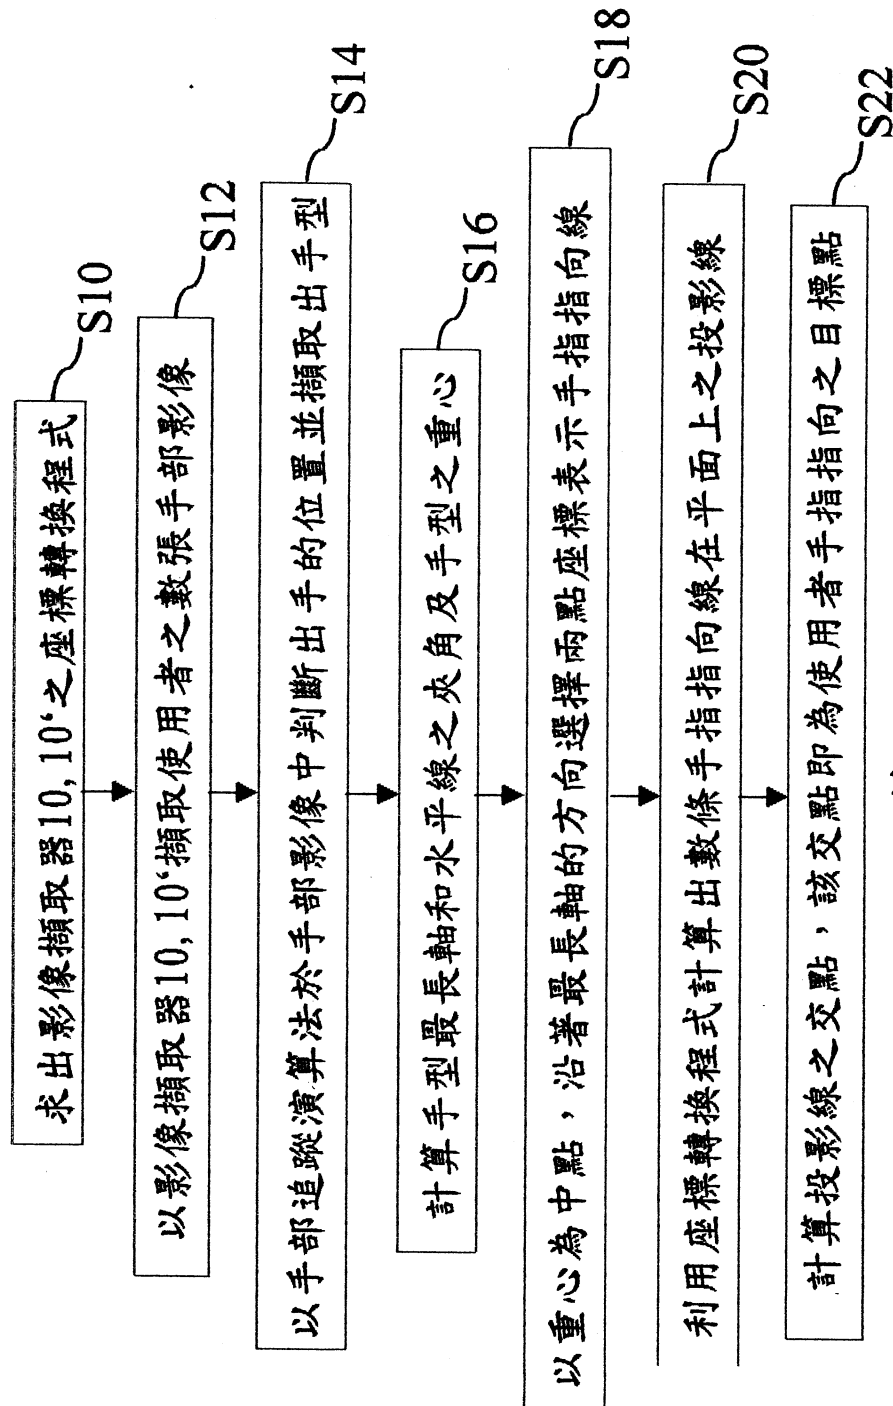 求出影像擷取器10,10‘之座標轉換程式
S10
以影像擷取器10,10‘擷取使用者之數張手部影像
S12
以手部追蹤演算法於手部影像中判斷出手的位置並擷取出手型
S14
計算手型最長軸和水平線之夾角及手型之重心
S16
以重心為中點，沿著最長軸的方向選擇兩點座標表示手指指向線
S18
利用座標轉換程式計算出數條手指指向線在平面上之投影線
S20
計算投影線之交點，該交點即為使用者手指指向之目標點
S22